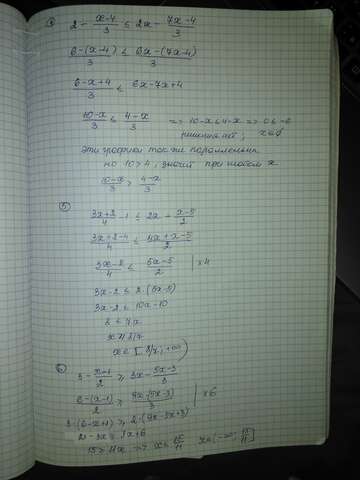 ④ 2 - (x-4)/3 ≤ 2x - (7x-4)/3
(6-(x-4))/3 ≤ (6x-(7x-4))/3
(6-x+4)/3 ≤ 6x-7x+4
(10-x)/3 ≤ (4-x)/3 => 10-x≤4-x => 0≤-6
решения нет, x∈∅
Эти графики так же параллельны
но 10>4, значит при любом x
(10-x)/3 > (4-x)/3
⑤ (3x+2)/4 - 1 ≤ 2x + (x-5)/2
(3x+2-4)/4 ≤ (4x+x-5)/2
(3x-2)/4 ≤ (5x-5)/2 | ×4
3x-2 ≤ 2·(5x-5)
3x-2 ≤ 10x-10
8 ≤ 7x
x ≥ 8/7
x∈[8/7; +∞)
⑥ 3 - (x-1)/2 ≥ 3x - (5x-3)/3
(6-(x-1))/2 ≥ (9x-(5x-3))/3 | ×6
3·(6-x+1) ≥ 2·(9x-5x+3)
21-3x ≥ 8x+6
15 ≥ 11x => x ≤ 15/11 x∈(-∞; 15/11]